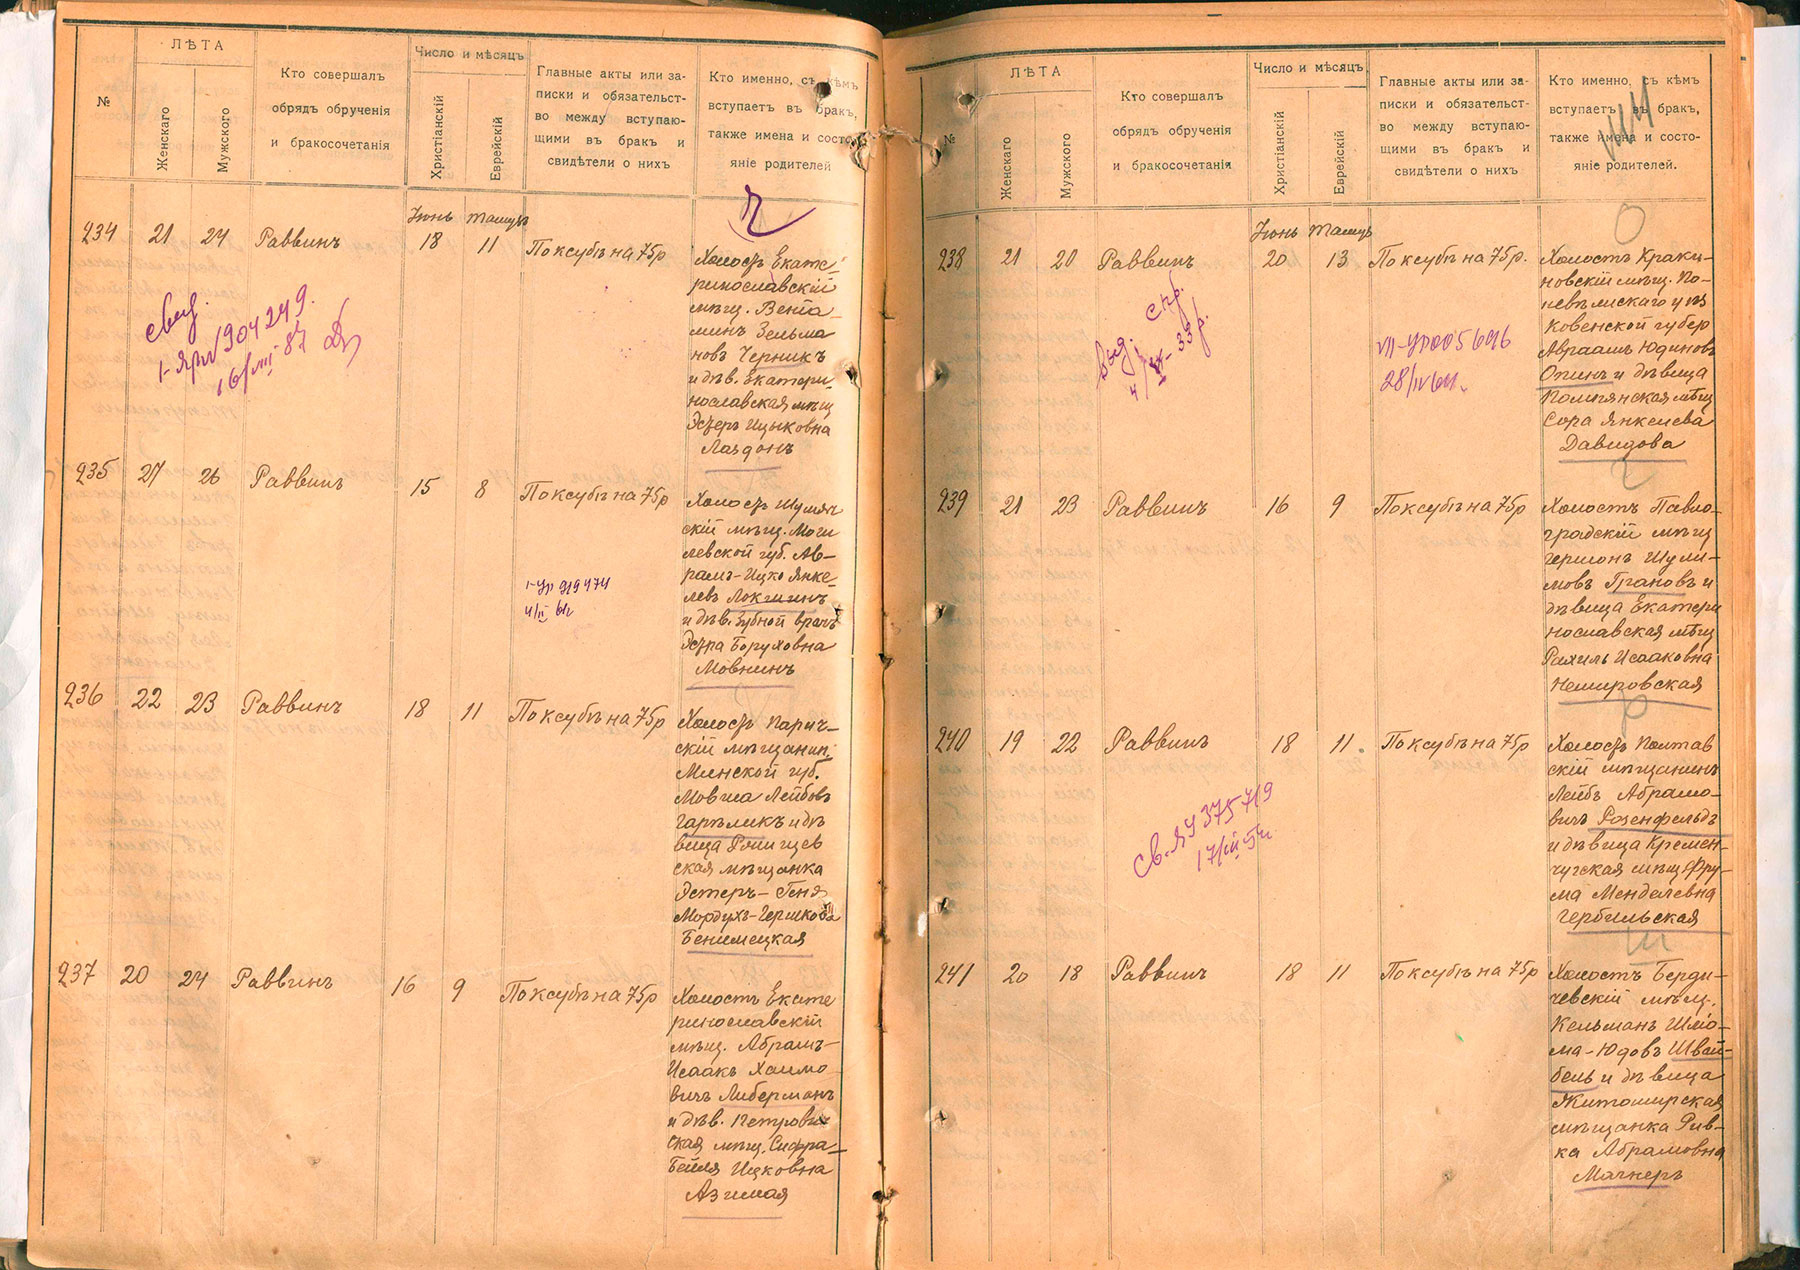 №
ЛѢТА
Женскаго
Мужского
Кто совершалъ
обрядъ обрученія
и бракосочетанія
Число и мѣсяцъ
Христіанскій
Еврейскій
Главные акты или за-
писки и обязательст-
во между вступаю-
щими въ бракъ и
свидѣтели о нихъ
Кто именно, съ кѣмъ
вступаетъ въ бракъ,
также имена и состо-
яніе родителей
Іюнь Тамузъ
234 21 24 Раввинъ 18 11 По ксубѣ на 75р
Холостъ Екате-
ринославскій
мѣщ. Веніа-
минъ Зельма
новъ Черникъ
и дѣв. Екатери-
нославская мѣщ
Эсѳеръ Ицыковна
Лаздонъ
235 27 26 Раввинъ 15 8 По ксубѣ на 75р
Холостъ Шумяч
скій мѣщ. Моги
левской губ. Ав-
рамъ-Ицко Янке-
левъ Локшинъ
и дѣв. Зубной врачъ
Эсѳра Боруховна
Мовнинъ
236 22 23 Раввинъ 18 11 По ксубѣ на 75р
Холостъ Парич-
скій мѣщанин.
Минской губ.
Мовша Лейбовъ
Гарѣликъ и дѣ
вица
ская мѣщанка
Эстеръ-Геня
Мордухъ-Гершкова
Бенимецкая
237 20 24 Раввинъ 16 9 По ксубѣ на 75р
Холостъ Екате
ринославскій
мѣщ. Абрамъ-
Исаакъ Хаимо-
вичъ Либерманъ
и дѣв. Петрович
ская мѣщ. Сифра-
Бейля Ицковна
Азимая
16/VIII 87
4/II 61г
№
ЛѢТА
Женскаго
Мужского
Кто совершалъ
обрядъ обрученія
и бракосочетанія
Число и мѣсяцъ
Христіанскій
Еврейскій
Главные акты или за-
писки и обязательст-
во между вступаю-
щими въ бракъ и
свидѣтели о нихъ
Кто именно, съ кѣмъ
вступаетъ въ бракъ,
также имена и состо-
яніе родителей.
Іюнь Тамузъ
238 21 20 Раввинъ 20 13 По ксубѣ на 75р.
Холостъ Краки-
новскій мѣщ. По-
невѣжскаго у на
Ковенской губер
Авраамъ Юдиновъ
Опинъ и дѣвица
Помпянская мѣщ
Сора Янкелева
Давидова
239 21 23 Раввинъ 16 9 По ксубѣ на 75р
Холостъ Павло-
градскій мѣщ
Гершонъ Шули-
мовъ Грановъ и
дѣвица Екатери
нославская мѣщ
Рахиль Исааковна
Немировская
240 19 22 Раввинъ 18 11 По ксубѣ на 75р
Холостъ Полтав
скій мѣщанинъ
Лейбъ Абрамо-
вичъ Розенфельдъ
и дѣвица Кремен-
чугская мѣщ Фру-
ма Менделевна
Гербильская
241 20 18 Раввинъ 18 11 По ксубѣ на 75р
Холостъ Берди-
чевскій мѣщ.
Кельманъ Шлio-
ма-Юдовъ Швай-
бель и дѣвица
Житомирская
мѣщанка Рив-
ка Абрамовна
Махнеръ
28/IV 61г.